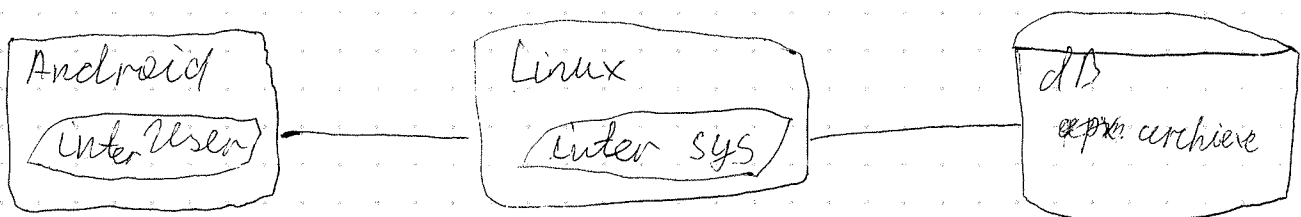 Android
inter User
Linux
inter sys
dB
archieve